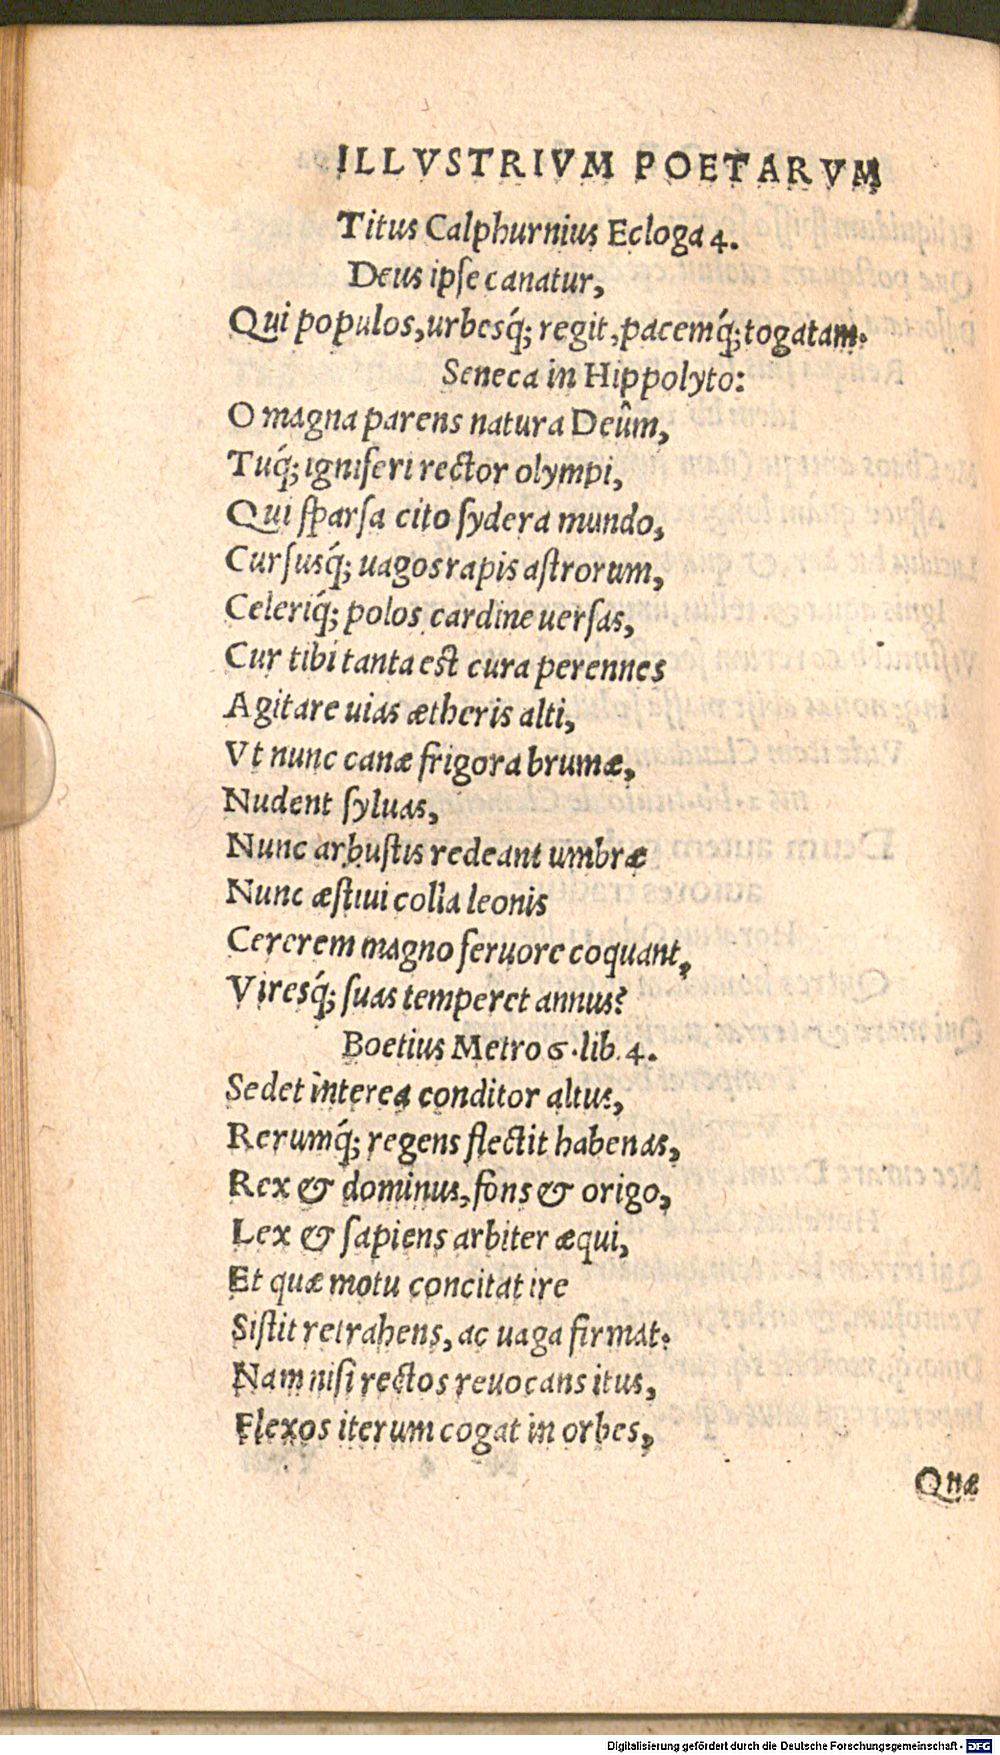 ILLVSTRIVM POETARVM
Titus Calphurnius Ecloga 4.
Deus ipse canatur,
Qui populos, urbesq́; regit, pacemq́; togatam.
Seneca in Hippolyto:
O magna parens natura Deûm,
Tuq́; igniferi rector olympi,
Qui sparsa cito sydera mundo,
Cursusq́; uagos rapis astrorum,
Celeriq́; polos cardine uersas,
Cur tibi tanta est cura perennes
Agitare uias ætheris alti,
Vt nunc canæ frigora brumæ,
Nudent syluas,
Nunc arbustis redeant umbræ
Nunc æstiui colla leonis
Cererem magno feruore coquant,
Viresq́; suas temperet annus?
Boetius Metro 6. lib. 4.
Sedet interea conditor altus,
Rerumq́; regens flectit habenas,
Rex & dominus, fons & origo,
Lex & sapiens arbiter æqui,
Et quæ motu concitat ire
Sistit retrahens, ac uaga firmat.
Nam nisi rectos reuocans itus,
Flexos iterum cogat in orbes,
Quæ
Digitalisierung gefördert durch die Deutsche Forschungsgemeinschaft - DFG